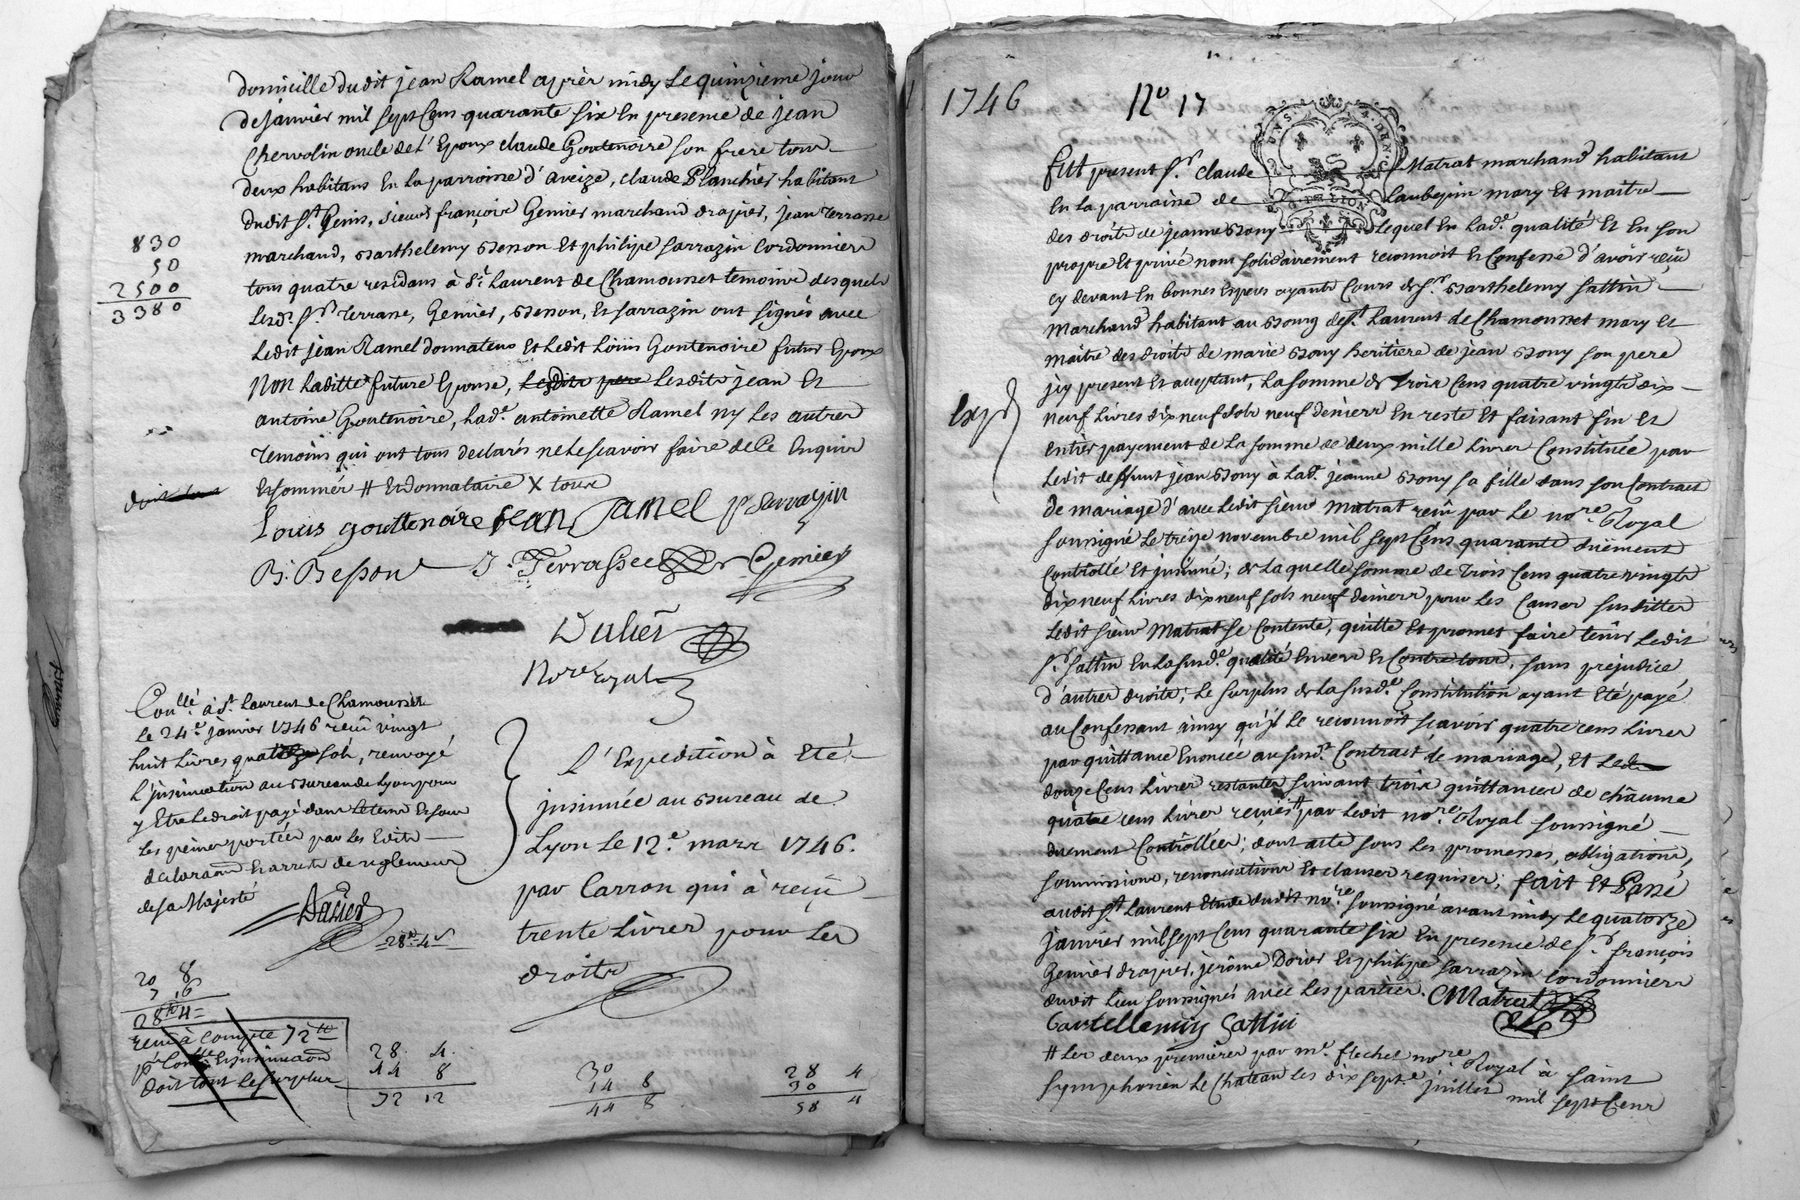 domicille dudit jean Ramel apprès midy le quinzieme jour
de janvier mil sept cens quarante six en presence de jean
Chervolin oncle de l'Epoux claude Goutenoire son frere tous
deux habitans en la parroisse d'aveize, claude Planchier habitant
dudit St Genis, sieurs françois Genier marchand drapier, jean terrasse
marchand, Barthelemy Besson et philipe sarrazin cordonniers
tous quatre residans à St Laurent de Chamousset temoins desquels
lesd. Srs terrasse, Genier, Besson, et sarrazin ont signés avec
ledit jean Ramel donnateur et ledit Loüis Goutenoire futur Epoux
non laditte future Epouse, lesdits pere lesdits jean et
antoine Goutenoire, lade antoinette Ramel ny les autres
temoins qui ont tous declarés ne le sçavoir faire de ce enquis
et sommés # et donnataire X tous
830
50
2500
3380
Louis gouttenoire jean Ramel p Sarrazin
B. Besson J. Terrasse Genier
Dulier
Nore royal
Conllé à St Laurent de Chamousset
le 24e janvier 1746 reçu vingt
huit livres quatre sols, renvoyé
l'jnsinuation au Bureau de Lyon pour
y etre le droit payé dans le tems et sous
les peines portées par les Edits
declaraons et arrets de reglement
de sa Majesté
Dulier
28lt 4s
L'Expedition à eté
jnsinuée au Bureau de
Lyon le 12e mars 1746.
par Carron qui à reçû
trente livres pour les
droits
20 8
7 16
28 4
reçu à compte 72lt
doit tout le surplus
28 4
44 8
72 12
30
14 8
44 8
28 4
30
58 4
1746 No 17
GEN. DE LION
Fut present Sr claude Matrat marchand habitant
en la parroisse de Laubepin mary et maitre
des droits de jeanne Bony lequel en lade qualité et en son
propre et privé nom solidairement reconnoit et confesse d'avoir reçû
cy devant en bonnes especes ayants cours de Sr Barthelemy sattin
Marchand habitant au Bourg de St Laurent de Chamousset mary et
maitre des droits de marie Bony heritiere de jean Bony son pere
jcy present et acceptant, la somme de trois cens quatre vingts dix
neuf livres dix neuf sols neuf deniers en reste et faisant fin et
entier payement de la somme de deux mille livres constituée par
ledit deffunt jean Bony à lade jeanne Bony sa fille dans son contract
de mariage d'avec ledit sieur Matrat reçû par le nore Royal
soussigné le treize novembre mil sept cens quarante duëment
controllé et jnsinué; de laquelle somme de trois cens quatre vingts
dix neuf livres dix neuf sols neuf deniers pour les causes susdittes
ledit sieur Matrat se contente, quitte et promet faire tenir ledit
Sr sattin en la susde qualité envers et contre tous, sans prejudice
d'autres droits; le surplus de la susde Constitution ayant eté payé
au Confessant ainsy qu'jl le reconnoit sçavoir quatre cens livres
par quittance enoncée au susd. Contract de mariage, et les
douze cens livres restantes suivant trois quittances de châcune
quatre cens livres reçües # par ledit nore Royal soussigné
duement Contrôllées; dont acte sous les promesses, obligations,
soumissions, renonciations et clauses requises; fait et Passé
audit St Laurent etude dudit nore soussigné avant midy le quatorze
janvier mil sept cens quarante six en presence de Sr françois
Genier drapier, jerôme Dorier et philipe sarrazin cordonniers
dudit lieu soussignés avec les parties. CMatrat
Bartellemy Sattin
# les deux premieres par me flechet nore Royal à saint
Symphorien le Chateau les dix septe juillet mil sept cens
Expd